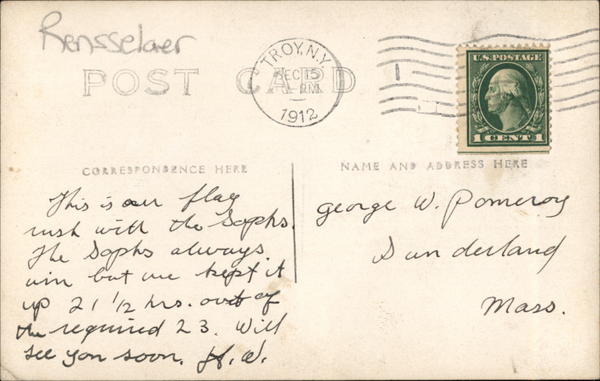 Rensselaer
POST CARD
TROY, N.Y.
DEC 15
PM
1912
U.S. POSTAGE
1 CENT 1
CORRESPONDENCE HERE
NAME AND ADDRESS HERE
This is our flag
rush with the Sophs.
The Sophs always
win but we kept it
up 21 1/2 hrs. out of
the required 23. Will
see you soon. H. W.
George W. Pomeroy
Sunderland
Mass.